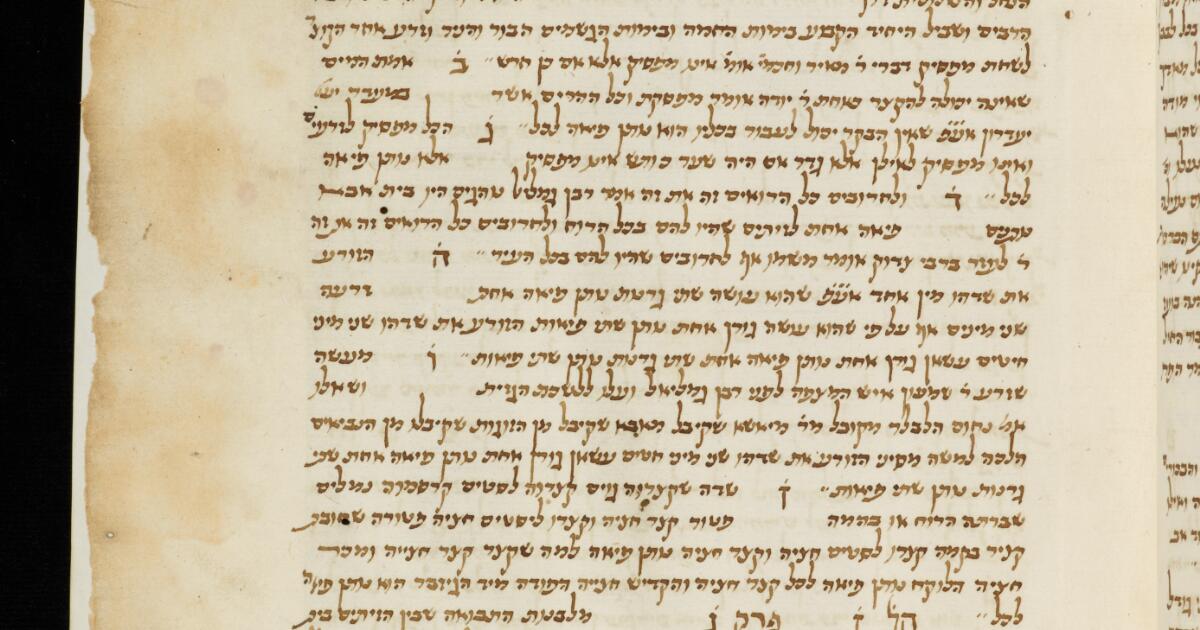 הנחל והשלולית ודרך
הרבים ושביל היחיד הקבוע בימות החמה ובימות הגשמים הבור והניר וזרע אחר הקוצ'
לשחת מפסיק דברי ר' מאיר וחכמ' אומ' אינו מפסיק אלא אם כן חרש ב אמת המים
שאינה יכולה להקצר כאחת ר' יודה אומר מפסקת וכל ההרים אשר במעדר
יעדרון אעפ שאין הבקר יכול לעבור בכליו הוא נותן פיאה לכל ג הכל מפסיק לזרעים
ואינו מפסיק לאילן אלא גדר אם היה שער כותש אינו מפסיק אלא נותן פיאה
לכל ד ולחרובים כל הרואים זה את זה אמר רבן גמליאל נוהגים היו בית אבא
נותנים פיאה אחת לזיתים שהיו להם בכל הרוח ולחרובים כל הרואים זה את זה
ר' לעזר ברבי צדוק אומר משמו אף לחרובים שהיו להם בכל העיר ה הזורע
את שדהו מין אחד אעפ שהוא עושה שתי גרנות נותן פיאה אחת זרעה
שני מינים אף על פי שהוא עושה גורן אחת נותן שתי פיאות הזורע את שדהו שני מיני
חיטים עשאן גורן אחת נותן פיאה אחת שתי גרנות נותן שתי פיאות ו מעשה
שזרע ר' שמעון איש המצפה לפני רבן גמליאל ועלו ללשכת הגזית ושאלו
אמ' נחום הלבלר מקובל מר' מיאשא שקיבל מאבא שקיבל מן הזוגות שקיבלו מן הנביאים
הלכה למשה מסיני הזורע את שדהו שני מיני חטים עשאן גורן אחת נותן פיאה אחת שתי
גרנות נותן שתי פיאות ז שדה שקצרוה גוים קצרוה לסטים קרסמוה נמלים
שברתה הרוח או בהמה פטור קצר חציה וקצרו ליסטים חציה פטורה שחובת
קציר בקמה קצרו לסטים חציה וקצר חציה נותן פיאה למה שקצר קצר חצייה ומכר
חציה הלוקח נותן פיאה לכל קצר חציה והקדיש חצייה הפודה מיד הגיזבר הוא נותן פיאה
לכל הל ז פרק ג מלבנות התבואה שבין הזיתים בית